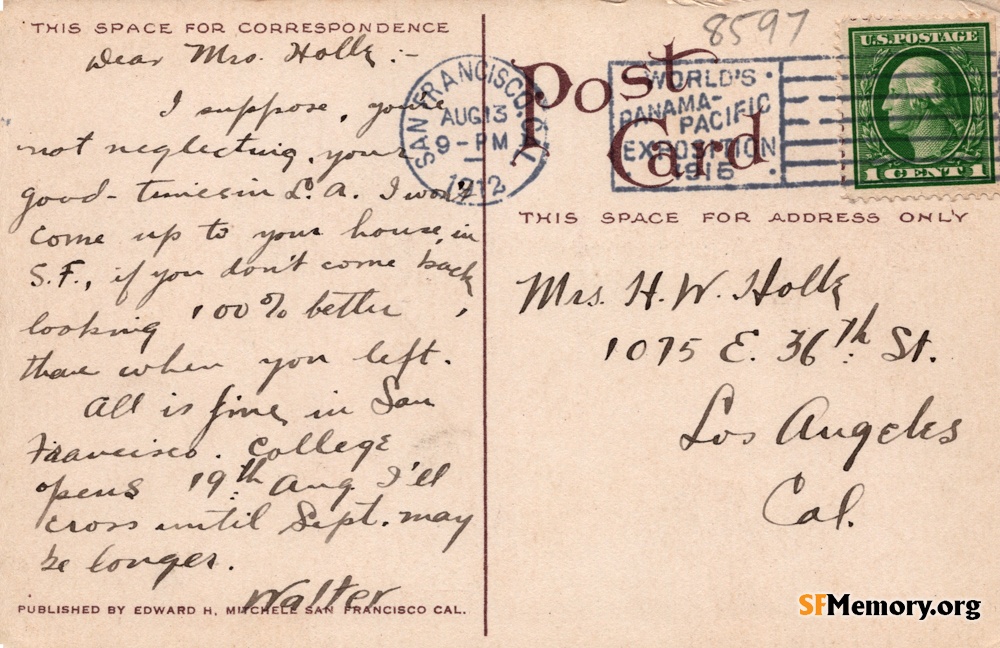 THIS SPACE FOR CORRESPONDENCE
Dear Mrs. Holle :-
I suppose, you're
not neglecting, your
good-times in L. A. I won't
come up to your house, in
S.F., if you don't come back,
looking 100% better
than when you left.
All is fine, in San
Francisco. College
opens 19th Aug I'll
cross until Sept. may
be longer.
Walter
PUBLISHED BY EDWARD H. MITCHELL SAN FRANCISCO CAL.
8597
Post
Card
SAN FRANCISCO, CAL.
AUG 13
9-PM
1912
WORLD'S
PANAMA-
PACIFIC
EXPOSITION
1915
U.S. POSTAGE
1 CENT 1
THIS SPACE FOR ADDRESS ONLY
Mrs. H. W. Holle
1075 E. 36th St.
Los Angeles
Cal.
SFMemory.org